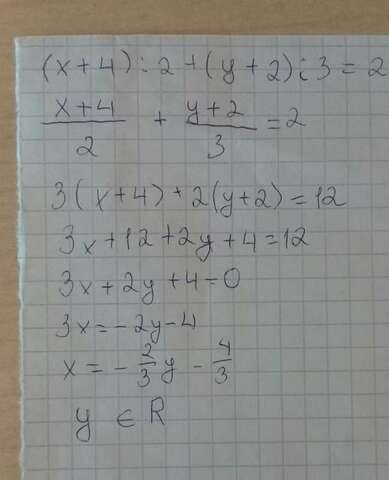 (x+4):2+(y+2):3=2
x+4/2 + y+2/3 =2
3(x+4)+2(y+2)=12
3x+12+2y+4=12
3x+2y+4=0
3x=-2y-4
x=-2/3y-4/3
y ∈ R